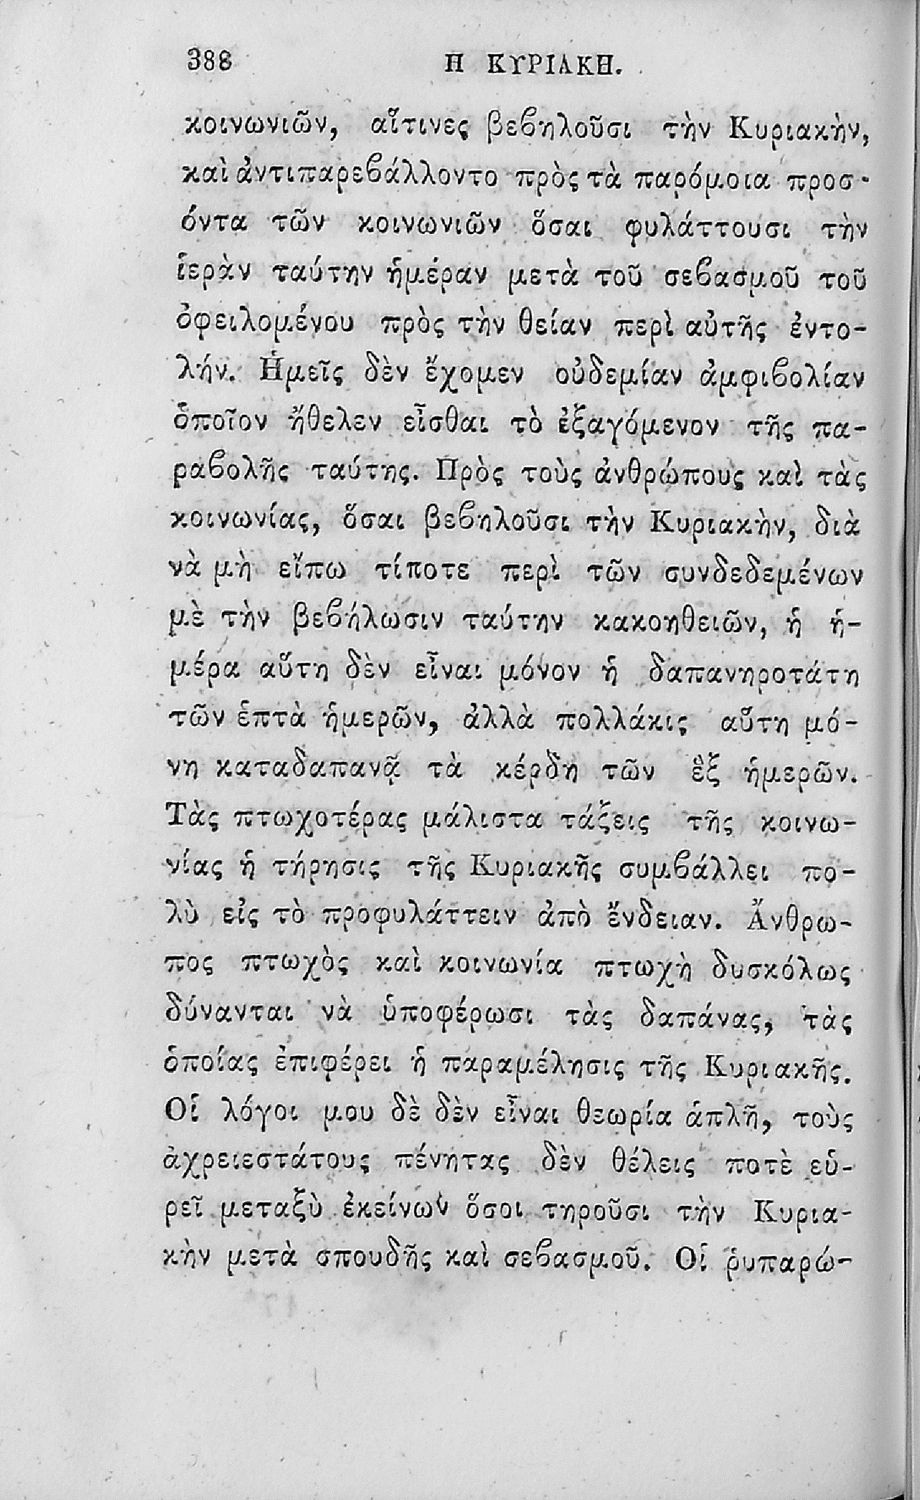 388 Η ΚΥΡΙΑΚΗ.
κοινωνιῶν, αἵτινες βεϐηλοῦσι τὴν Κυριακὴν,
καὶ ἀντιπαρεϐάλλοντο πρὸς τὰ παρόμοια προσ-
όντα τῶν κοινωνιῶν ὅσαι φυλάττουσι τὴν
ἱερὰν ταύτην ἡμέραν μετὰ τοῦ σεϐασμοῦ τοῦ
ὀφειλομένου πρὸς τὴν θείαν περὶ αὐτῆς ἐντο-
λήν. Ἡμεῖς δὲν ἔχομεν οὐδεμίαν ἀμφιϐολίαν
ὁποῖον ἤθελεν εἶσθαι τὸ ἐξαγόμενον τῆς πα-
ραϐολῆς ταύτης. Πρὸς τοὺς ἀνθρώπους καὶ τὰς
κοινωνίας, ὅσαι βεϐηλοῦσι τὴν Κυριακὴν, διὰ
νὰ μὴ εἴπω τίποτε περὶ τῶν συνδεδεμένων
μὲ τὴν βεϐήλωσιν ταύτην κακοηθειῶν, ἡ ἡ-
μέρα αὕτη δὲν εἶναι μόνον ἡ δαπανηροτάτη
τῶν ἑπτὰ ἡμερῶν, ἀλλὰ πολλάκις αὕτη μό-
νη καταδαπανᾷ τὰ κέρδη τῶν ἓξ ἡμερῶν.
Τὰς πτωχοτέρας μάλιστα τάξεις τῆς κοινω-
νίας ἡ τήρησις τῆς Κυριακῆς συμϐάλλει πο-
λὺ εἰς τὸ προφυλάττειν ἀπὸ ἔνδειαν. Ἄνθρω-
πος πτωχὸς καὶ κοινωνία πτωχὴ δυσκόλως
δύνανται νὰ ὑποφέρωσι τὰς δαπάνας, τὰς
ὁποίας ἐπιφέρει ἡ παραμέλησις τῆς Κυριακῆς.
Οἱ λόγοι μου δὲ δὲν εἶναι θεωρία ἁπλῆ, τοὺς
ἀχρειεστάτους πένητας δὲν θέλεις ποτὲ εὑ-
ρεῖ μεταξὺ ἐκείνων ὅσοι τηροῦσι τὴν Κυρια-
κὴν μετὰ σπουδῆς καὶ σεϐασμοῦ. Οἱ ῥυπαρώ-